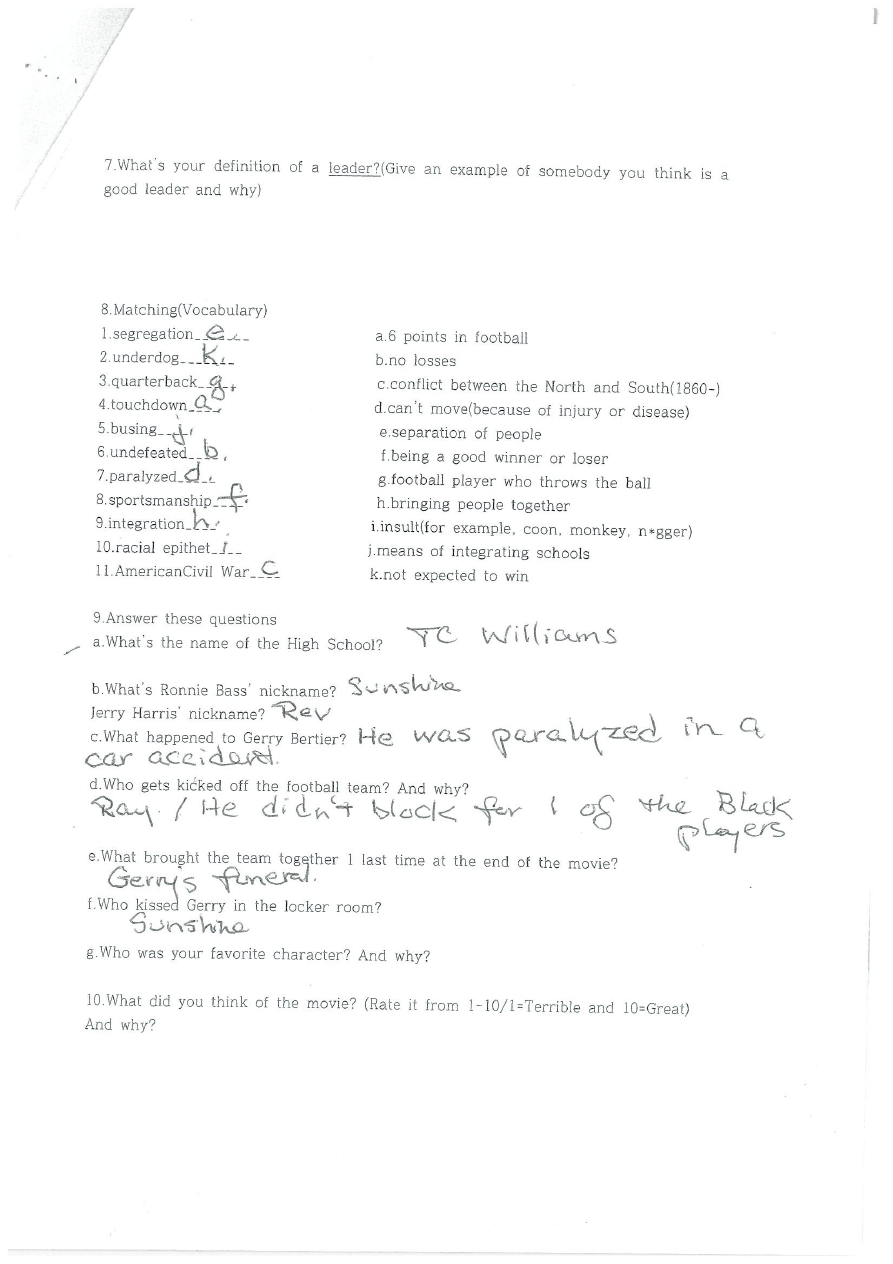 7.What's your definition of a leader?(Give an example of somebody you think is a
good leader and why)
8.Matching(Vocabulary)
1.segregation e a.6 points in football
2.underdog k b.no losses
3.quarterback g c.conflict between the North and South(1860-)
4.touchdown a d.can't move(because of injury or disease)
5.busing j e.separation of people
6.undefeated b f.being a good winner or loser
7.paralyzed d g.football player who throws the ball
8.sportsmanship f h.bringing people together
9.integration h i.insult(for example, coon, monkey, n*gger)
10.racial epithet i j.means of integrating schools
11.AmericanCivil War C k.not expected to win
9.Answer these questions
a.What's the name of the High School? TC Williams
b.What's Ronnie Bass' nickname? Sunshine
Jerry Harris' nickname? Rev
c.What happened to Gerry Bertier? He was paralyzed in a
car accident.
d.Who gets kicked off the football team? And why?
Ray. / He didn't block for 1 of the Black
players
e.What brought the team together 1 last time at the end of the movie?
Gerry's funeral.
f.Who kissed Gerry in the locker room?
Sunshine
g.Who was your favorite character? And why?
10.What did you think of the movie? (Rate it from 1-10/1=Terrible and 10=Great)
And why?